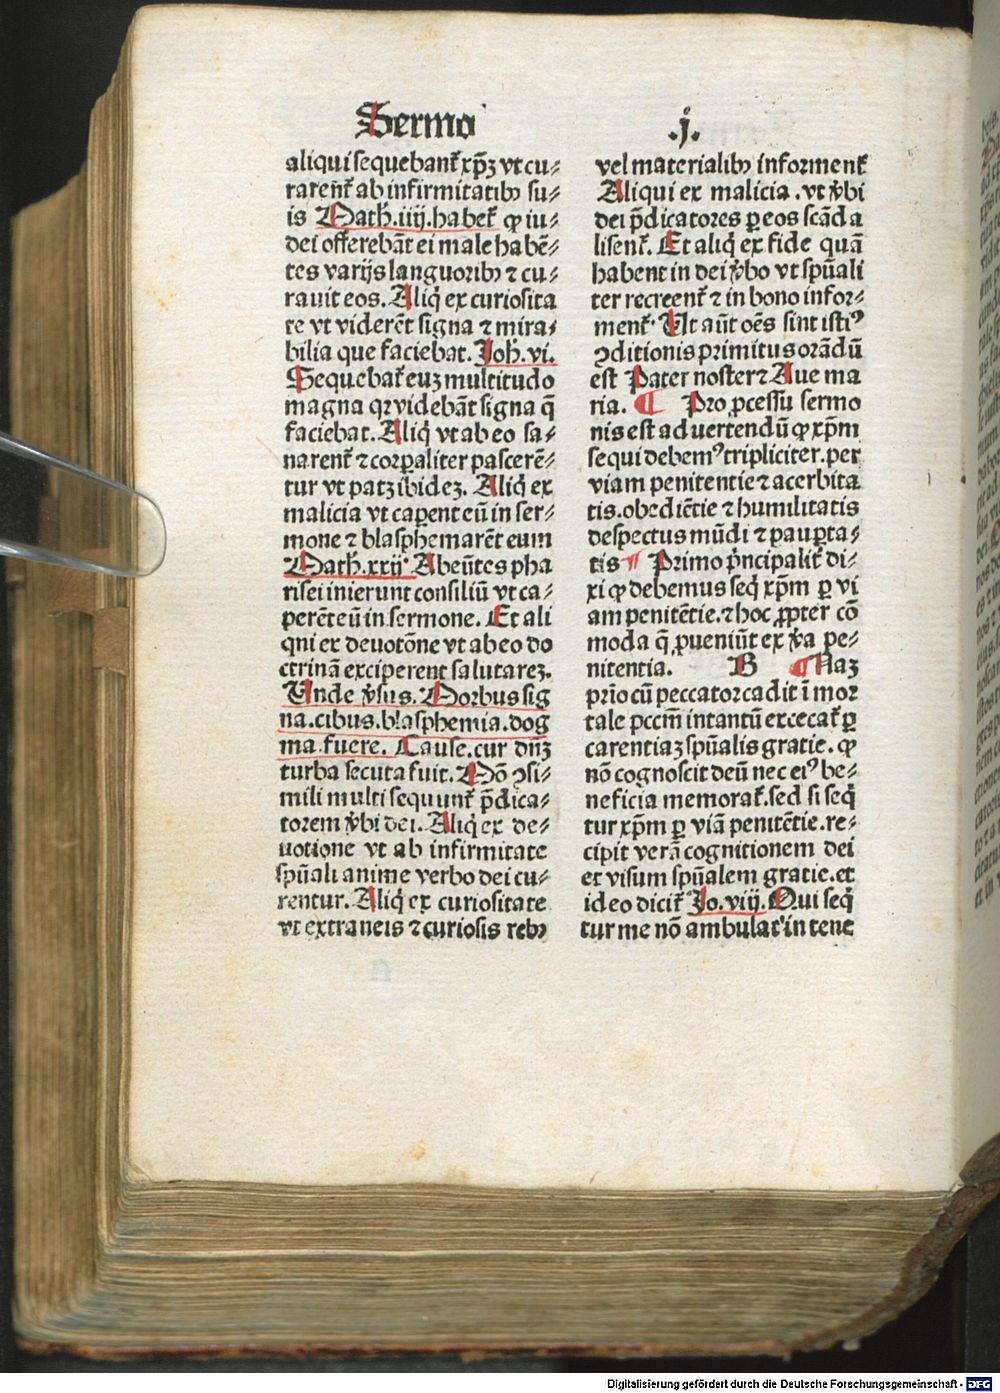 Sermo .j.
aliqui sequebant᷑ xp̄ꝫ vt cu⸗
rarent᷑ ab infirmitatibꝰ su⸗
is Math̄. iiij. habet᷑ ꝙ iu⸗
dei offerebāt ei male habē⸗
tes varijs languoribꝰ ⁊ cu⸗
rauit eos. Aliq̇ ex curiosita
te vt viderēt signa ⁊ mira⸗
bilia que faciebat. Joh̄. vi.
Sequebat᷑ euꝫ multitudo
magna qꝛ videbāt signa q̄
faciebat. Aliq̇ vt ab eo sa⸗
narent᷑ ⁊ corꝑaliter pascerē⸗
tur vt patꝫ ibideꝫ. Aliq̇ ex
malicia vt caꝑent eū in ser⸗
mone ⁊ blasphemarēt eum
Math̄. xxij. Abeūtes pha
risei inierunt consiliū vt ca⸗
perēt eū in sermone. Et ali
qni ex deuotōne vt ab eo do
ctrinā exciperent salutareꝫ.
Unde v̓sus. Morbus sig
na. cibus. blasphemia. dog
ma. fuere. Cause. cur dn̄ꝫ
turba secuta fuit. Mō ꝯsi⸗
mili multi sequunt᷑ p̄dica⸗
torem v̓bi dei. Aliq̇ ex de⸗
uotione vt ab infirmitate
spūali anime verbo dei cu⸗
rentur. Aliq̇ ex curiositate
vt extraneis ⁊ curiosis rebꝰ
vel materialibꝰ informent᷑
Aliqui ex malicia. vt v̓bi
dei p̄dicatores ꝑ eos scāda
lisent᷑. Et aliq̇ ex fide quā
habent in dei v̓bo vt spūali
ter recreent᷑ ⁊ in bono infor⸗
ment᷑. Ut aūt oēs sint isti⁹
ꝯditionis primitus orādū
est Pater noster ⁊ Aue ma
ria. ¶ Pro ꝓcessu sermo
nis est aduertendū ꝙ xp̄m
sequi debem⁹ tripliciter. per
viam penitentie ⁊ acerbita
tis. obediētie ⁊ humilitatis
despectus mūdi ⁊ pauꝑta⸗
tis ¶ Primo p̓ncipalit᷑ di⸗
xi ꝙ debemus seq̇ xp̄m ꝑ vi
am penitētie. ⁊ hoc ꝓpter cō
moda q̄ ꝓueniūt ex v̓a pe⸗
nitentia. B ¶ Naꝫ
prīo cū peccator cadit ī mor
tale pccm̄ intantū excecat᷑ ꝑ
carentiaꝫ spūalis gratie. ꝙ
nō cognoscit deū nec ei⁹ be⸗
neficia memorat᷑. sed si seq̇
tur xp̄m ꝑ viā penitētie. re⸗
cipit verā cognitionem dei
et visum spūalem gratie. et
ideo dicit᷑ Jo. viij. Qui seq̇
tur me nō ambulat in tene
Digitalisierung gefördert durch die Deutsche Forschungsgemeinschaft - DFG